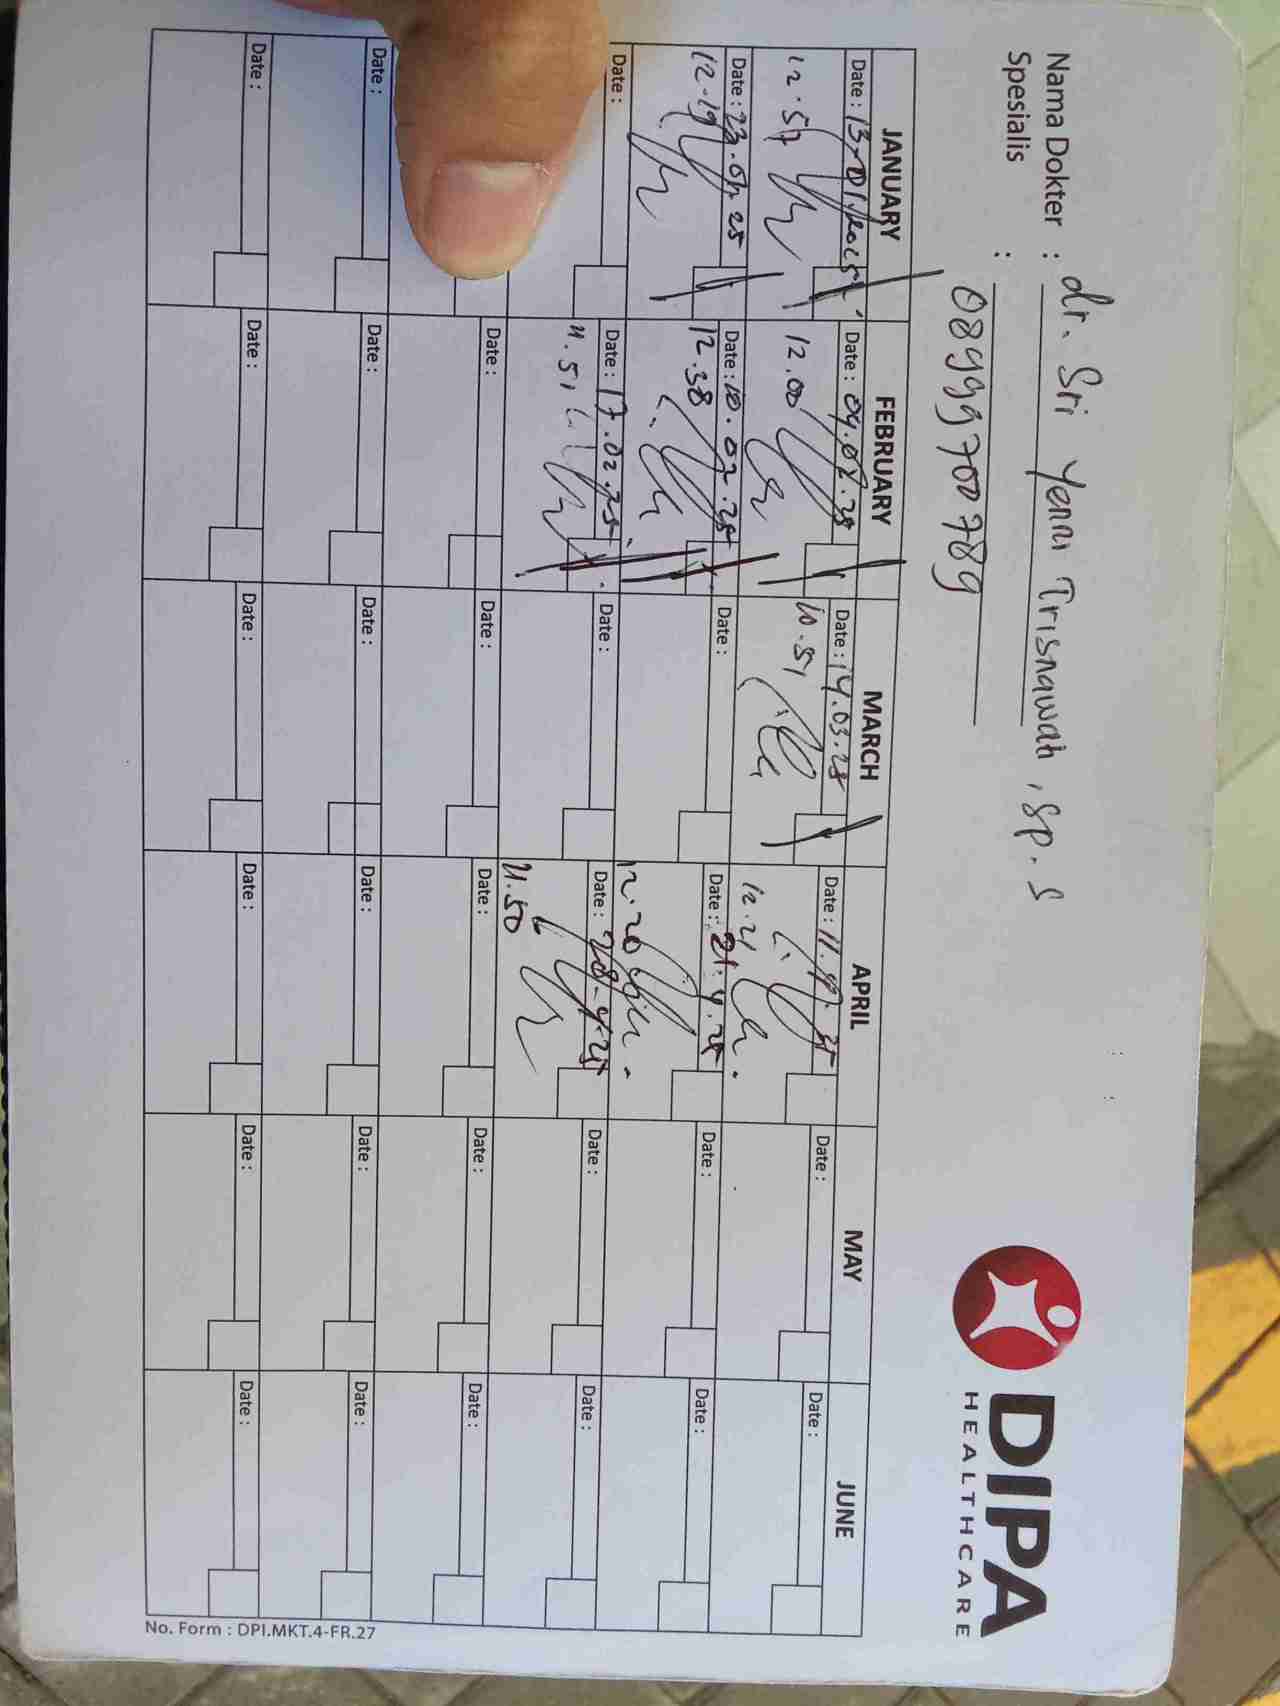 Nama Dokter : dr. Sri Yenni Trisnawati, Sp. S
Spesialis :
0899970078 9
DIPA
HEALTHCARE
JANUARY FEBRUARY MARCH APRIL MAY JUNE
Date : 13-01-2025 Date : 04.02.25 Date : 14.03.25 Date : 11.4.25 Date : Date :
12.57 12.00 10.51 12.21
Date : 23.01.25 Date : 10.02.25 Date : Date : 21.4.25 Date : Date :
12.19 12.38 12.20
Date : Date : 17.02.25 Date : Date : 28-4-25 Date : Date :
11.51 11.50
Date : Date : Date : Date : Date :
Date : Date : Date : Date : Date : Date :
Date : Date : Date : Date : Date : Date :
No. Form : DPI.MKT.4-FR.27